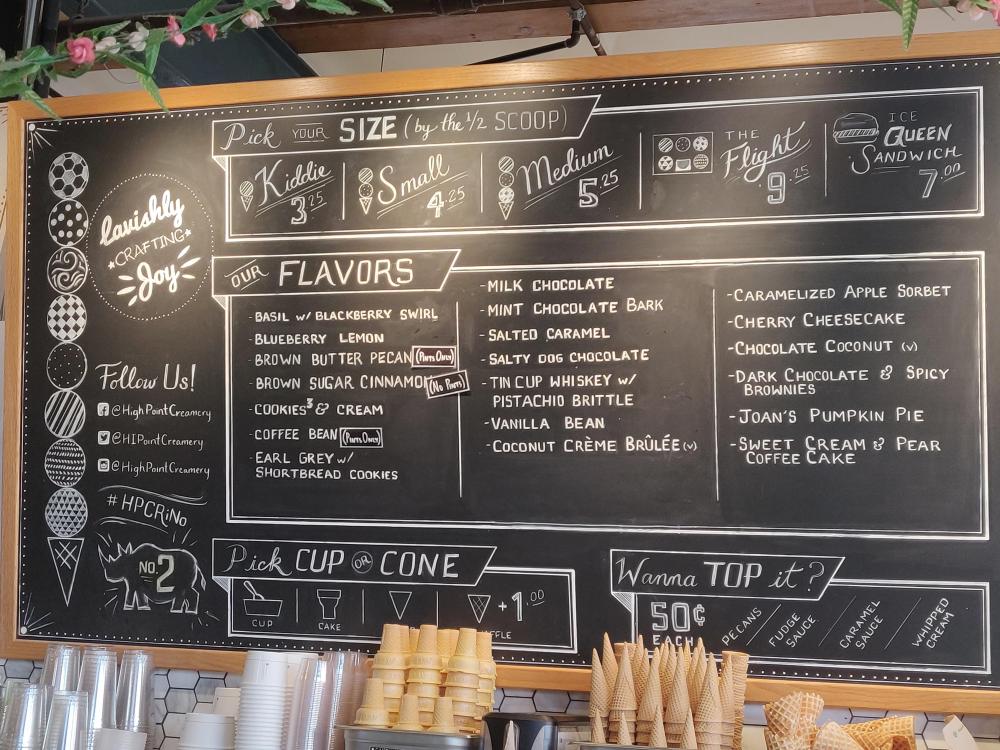 Pick YOUR SIZE (by the 1/2 SCOOP)
Kiddie
3.25
Small
4.25
Medium
5.25
THE
Flight
9.25
ICE
QUEEN
SANDWICH
7.00
lavishly
CRAFTING
Joy
Follow Us!
@HighPointCreamery
@HIPointCreamery
@HighPointCreamery
#HPCRiNo
NO.2
OUR FLAVORS
-BASIL W/ BLACKBERRY SWIRL
-BLUEBERRY LEMON
-BROWN BUTTER PECAN (Pints Only)
-BROWN SUGAR CINNAMO (No Pints)
-COOKIES³ & CREAM
-COFFEE BEAN (Pints Only)
-EARL GREY W/
SHORTBREAD COOKIES
-MILK CHOCOLATE
-MINT CHOCOLATE BARK
-SALTED CARAMEL
-SALTY DOG CHOCOLATE
-TIN CUP WHISKEY W/
PISTACHIO BRITTLE
-VANILLA BEAN
-COCONUT CRÈME BRÛLÉE (V)
-CARAMELIZED APPLE SORBET
-CHERRY CHEESECAKE
-CHOCOLATE COCONUT (V)
-DARK CHOCOLATE & SPICY
BROWNIES
-JOAN'S PUMPKIN PIE
-SWEET CREAM & PEAR
COFFEE CAKE
Pick CUP OR CONE
CUP
CAKE
+1.00
Wanna TOP it?
50¢
EACH
PECANS
FUDGE
SAUCE
CARAMEL
SAUCE
WHIPPED
CREAM